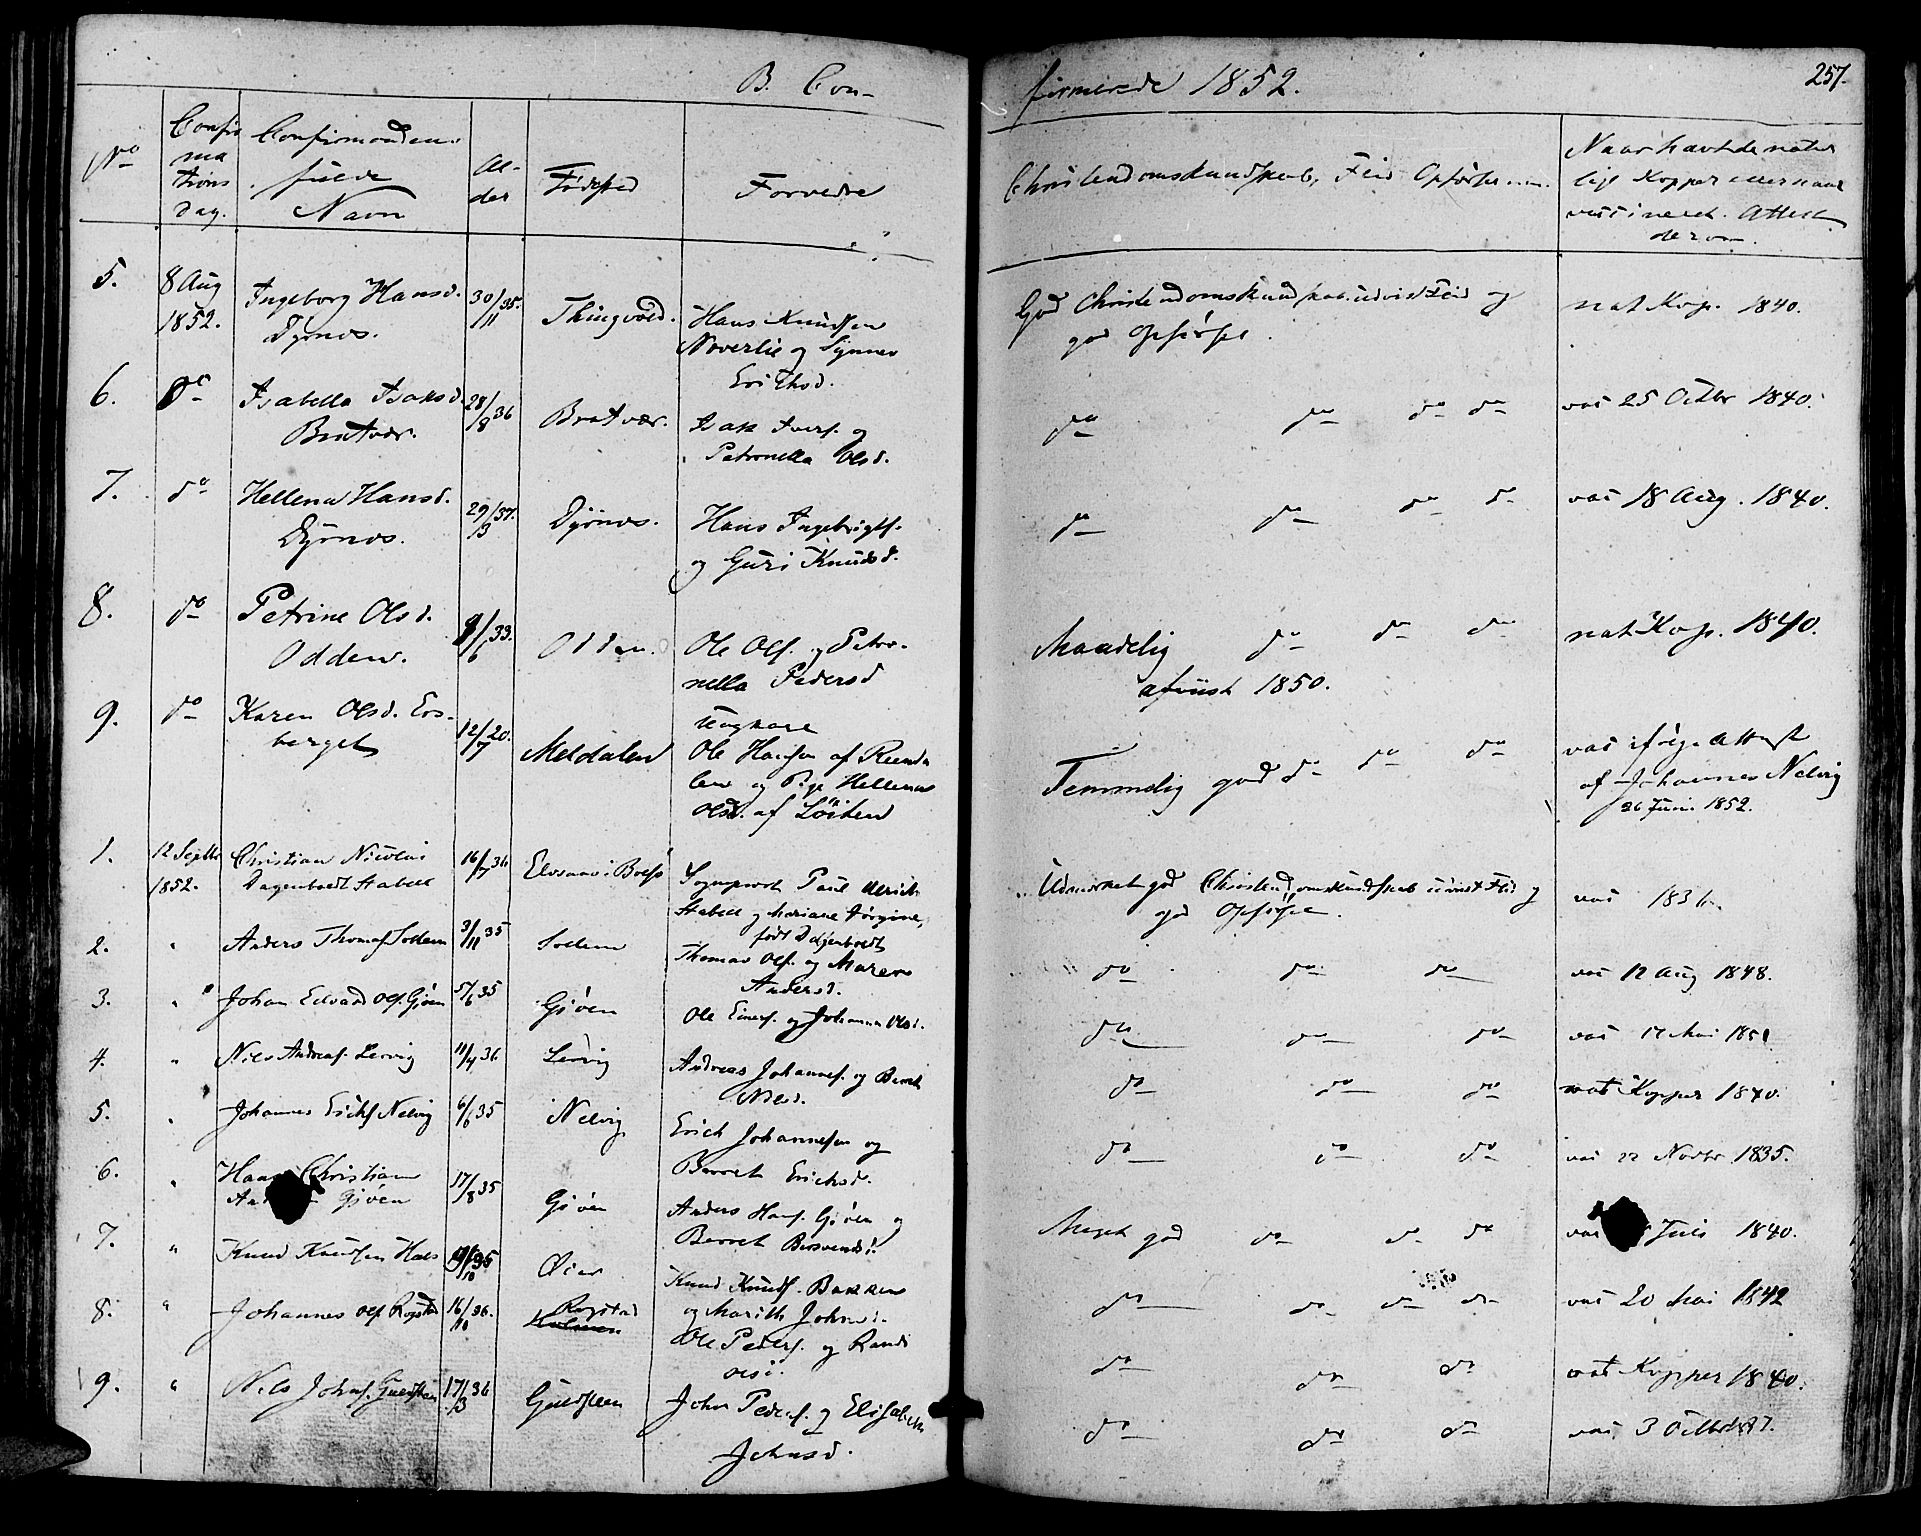 B. Con-
firmerede 1852.
257.
No
Confir
ma
tions
Dag.
Confirmandens
fulde
Navn
Al-
der
Fødested
Forældre
Christendomskundskab, Flid Opførsel m.m.
Naar havt de natur
lige Kopper eller naar
vaccineret. Attest
derom.
5.
8 Aug
1852.
Ingeborg Hansd.
Dyrnes.
30/11 35.
Thingvold.
Hans Knudsen
og Synnev
Erichsd.
God Christendomskundskab udvist Flid og
god Opførsel.
nat Kop. 1840.
6.
do
Isabella Isaksd.
Bratvær.
28/8 36
Bratvær.
Isak Ivers. og
Petronella Olsd.
do do do do
vac 25 Octbr 1840.
7.
do
Hellena Hansd.
Dyrnes.
29/3 37.
Dyrnes.
Hans Ingebrigts.
og Guri Knudsd.
do do do do
vac 18 Aug. 1840.
8.
do
Petrine Olsd.
Odden.
9/6 33.
Odden.
Ole Ols. og Petro-
nella Pedersd
Maadelig do do do
afviist 1850.
nat Kop. 1840.
9.
do
Karen Olsd.
berget
12/7 20.
Meldalen
Ungkarl
Ole Hansen af
og Pige Hellena
Olsd. af
Temmelig god do do do
vac ifølge Attest
af Johannes Nelvig
26 Juni 1852.
1.
12 Septbr
1852.
Christian Nicolai
Stabell
16/7 36
Sognepræst Paul Ulrich
Stabell og Mariane Jørgine,
født
Udmærket god Christendomskundskab udvist Flid og
god Opførsel.
vac
2.
"
Anders Thomass Solem
3/11 35
Solem
Thomas Ols. og Maren
Andersd.
do do do
vac 12 Aug 1848.
3.
"
Johan Edvard Ols. Gjøen
5/6 35
Gjøen
Ole Einers. og Johanna Olsd.
do do do
vac 17 Mai 1851
4.
"
Nils Andreas. Lervig
11/4 36
Lervig
Andreas Johannes. og Berret
Nilsd.
do do do
nat Kopper 1840.
5.
"
Johannes Erichs Nelvig
6/6 35
Nelvig
Erich Johannesen og
Berret Erichsd.
do do do
vac 22 Novbr 1835.
6.
"
Hans Christian
Gjøen
17/8 35
Gjøen
Anders Hans. Gjøen og
Berret
Meget god do do do
vac Juli 1840.
7.
"
Knud Knudsen Hals
Knud Knuds. Bakken
og Marith Johnsd.
do do do do
vac 20 Mai 1842
8.
"
Johannes Ols Rogstad
16/10 36.
Rogstad
Ole Peders. og Randi
Olsd.
do do do
nat Kopper 1840.
9.
"
Nils Johns. Guldsten
17/3 36
Guldsteen
John Peders. og Elisabeth
Johnsd.
do do do
vac 3 Octbr